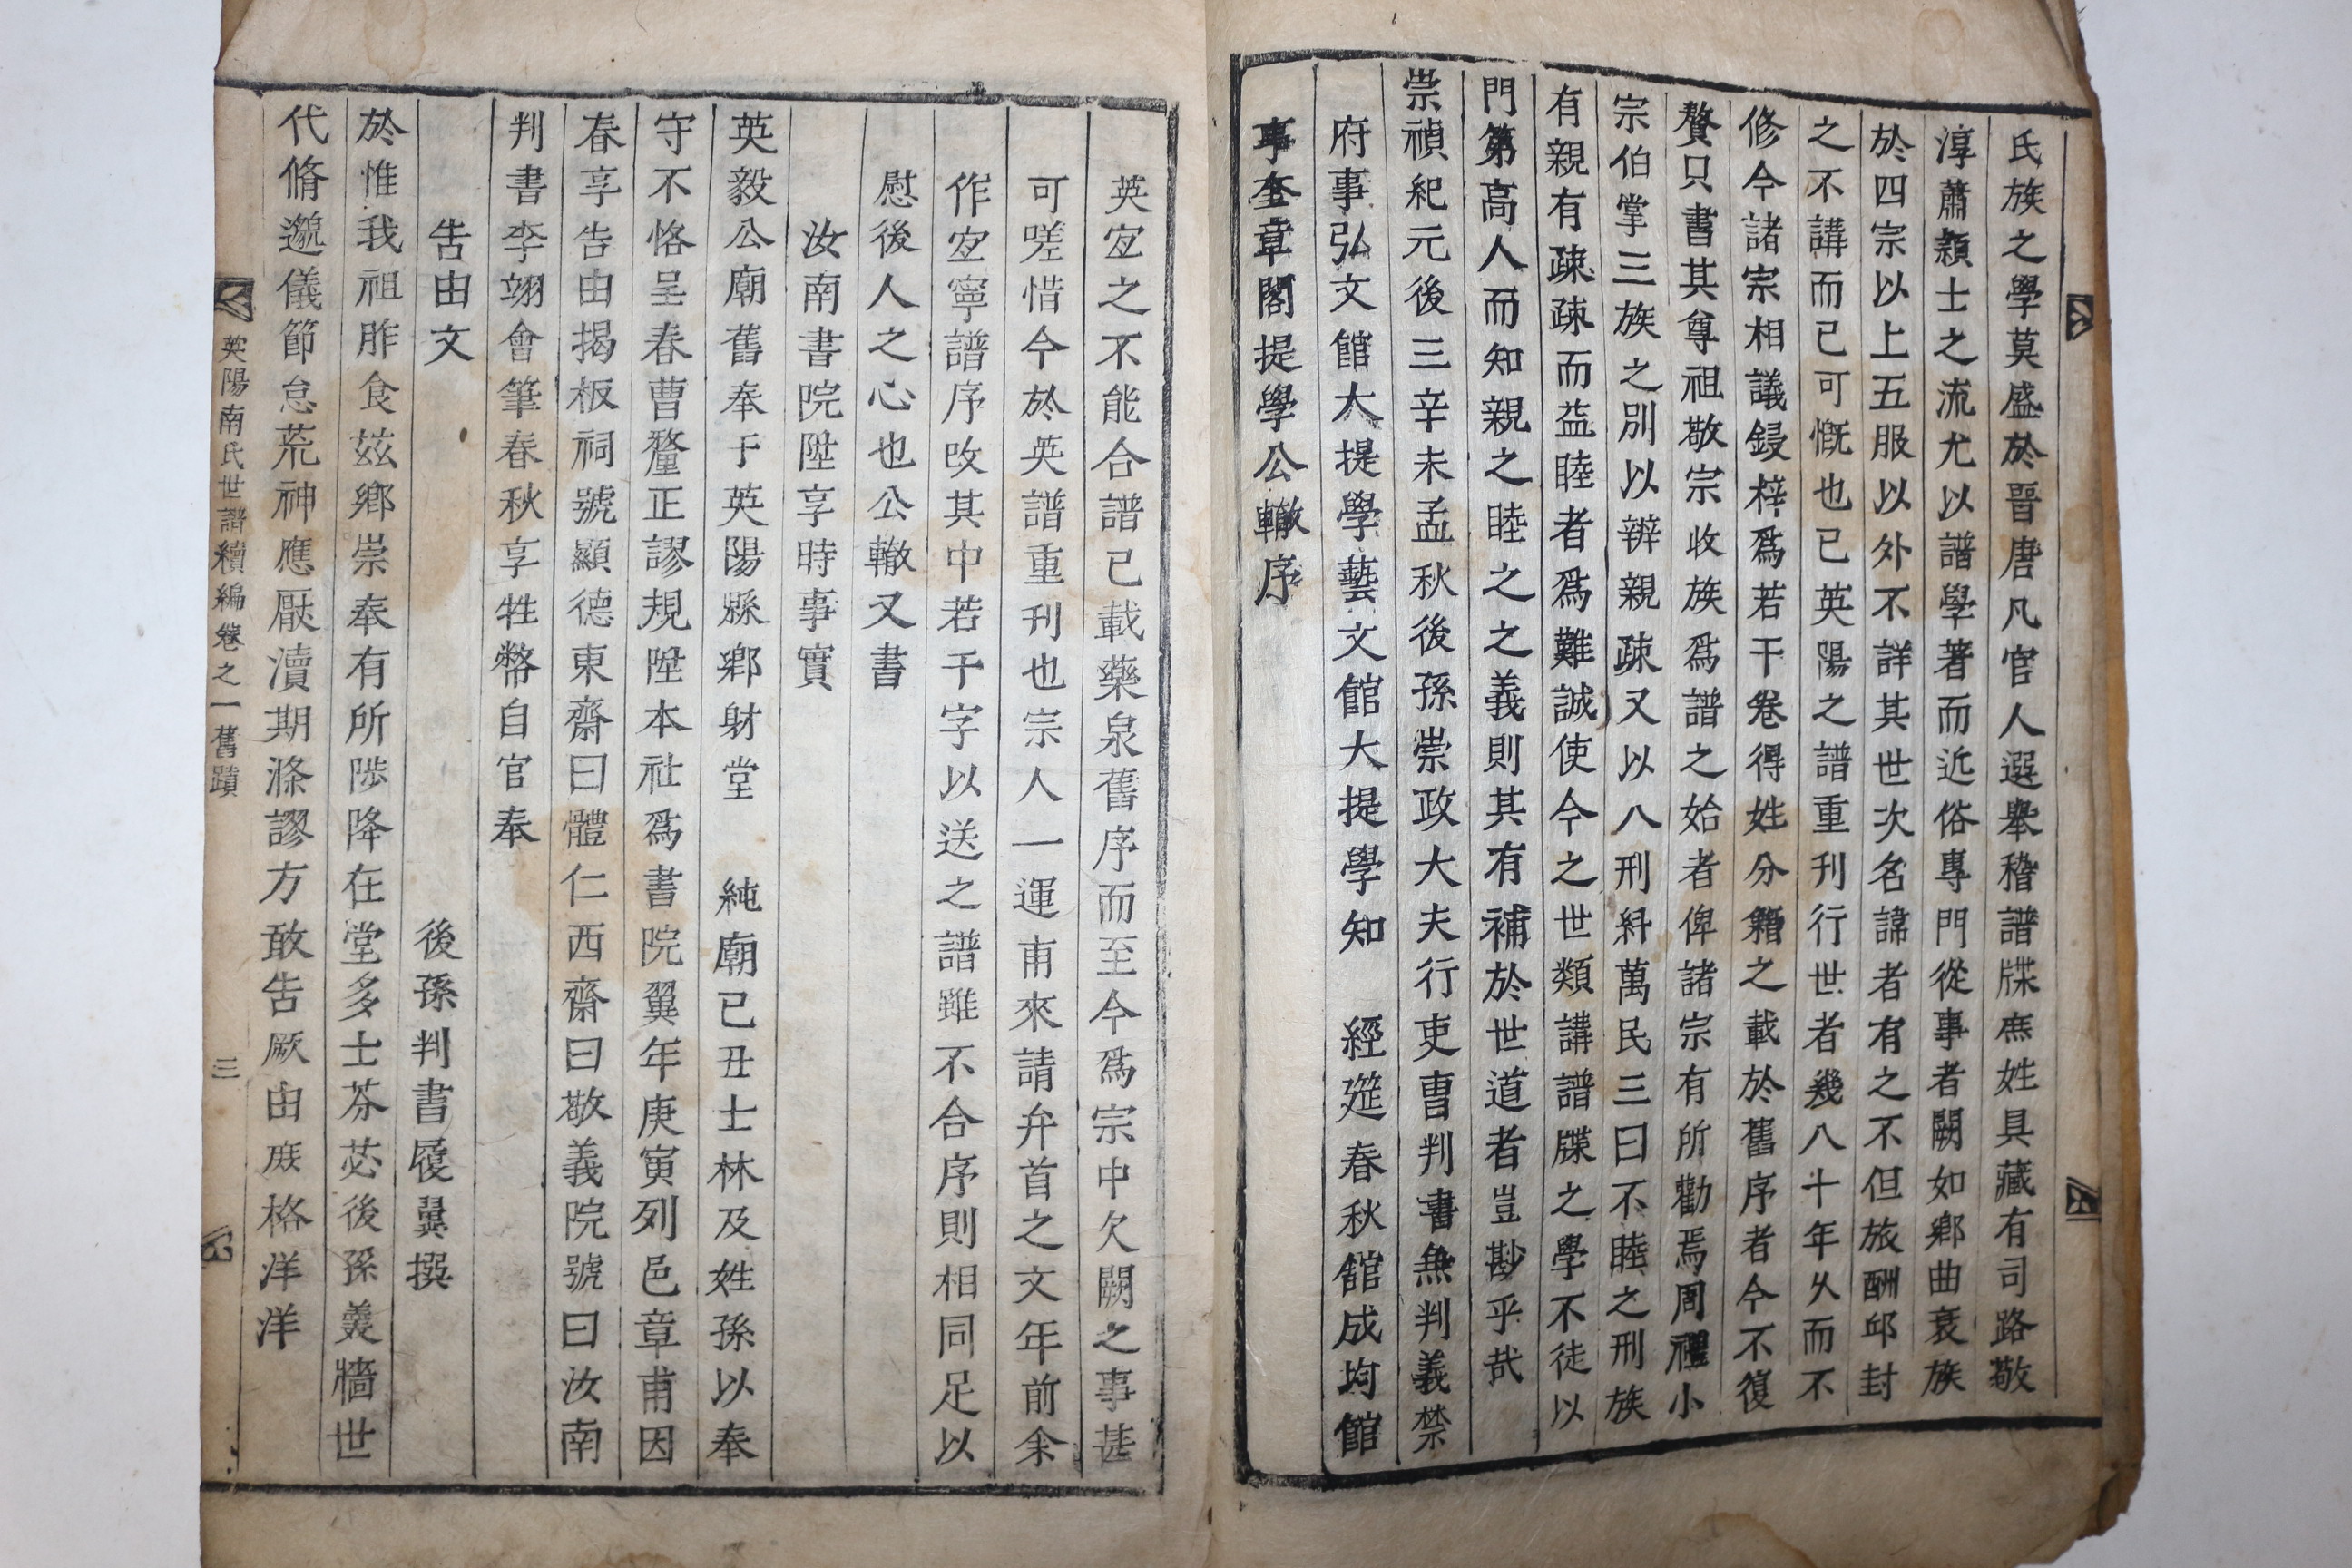 氏族之學莫盛於晉唐凡官人選擧稽譜牒庶姓具藏有司路敬
淳蕭穎士之流尤以譜學著而近俗專門從事者闕如鄕曲衰族
於四宗以上五服以外不詳其世次名諱者有之不但旅酬邱封
之不講而已可慨也已英陽之譜重刊行世者幾八十年久而不
修今諸宗相議鋟梓爲若干卷得姓分籍之載於舊序者今不復
贅只書其尊祖敬宗收族爲譜之始者俾諸宗有所勸焉周禮小
宗伯掌三族之別以辨親疎又以八刑糾萬民三曰不睦之刑族
有親有疎疎而益睦者爲難誠使今之世類講譜牒之學不徒以
門第高人而知親之睦之之義則其有補於世道者豈尠乎哉
崇禎紀元後三辛未孟秋後孫崇政大夫行吏曹判書無判義禁
府事弘文館大提學藝文館大提學知 經筵春秋館成均館
事奎章閣提學公轍序
英宜之不能合譜已載藥泉舊序而至今爲宗中欠闕之事甚
可嗟惜今於英譜重刊也宗人一運甫來請弁首之文年前余
作宜寧譜序改其中若干字以送之譜雖不合序則相同足以
慰後人之心也公轍又書
汝南書院陞享時事實
英毅公廟舊奉于英陽縣鄕射堂 純廟己丑士林及姓孫以奉
守不恪呈春曹釐正謬規陞本社爲書院翼年庚寅列邑章甫因
春享告由揭板祠號顯德東齋曰體仁西齋曰敬義院號曰汝南
判書李翊會筆春秋享牲幣自官奉
告由文
後孫判書履翼撰
於惟我祖胙食玆鄕崇奉有所陟降在堂多士芬苾後孫羹牆世
代脩邈儀節怠荒神應厭瀆期滌謬方敢告厥由庶格洋洋
英陽南氏世譜續編卷之一 舊蹟 三